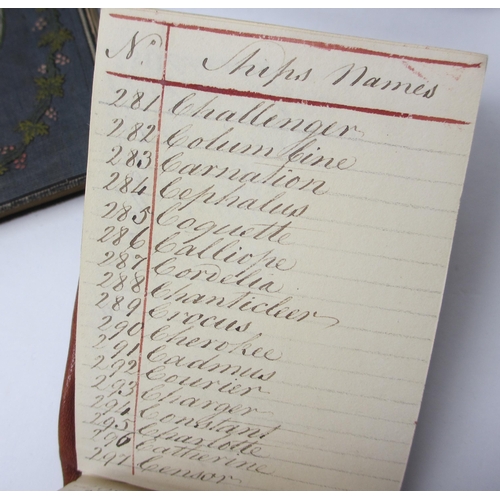 No. Ships Names
281 Challenger
282 Columbine
283 Carnation
284 Cephalus
285 Coquette
286 Calliope
287 Cordelia
288 Chanticleer
289 Crocus
290 Cherokee
291 Cadmus
292 Courier
293 Charger
294 Constant
295 Charlotte
296 Catherine
297 Censor